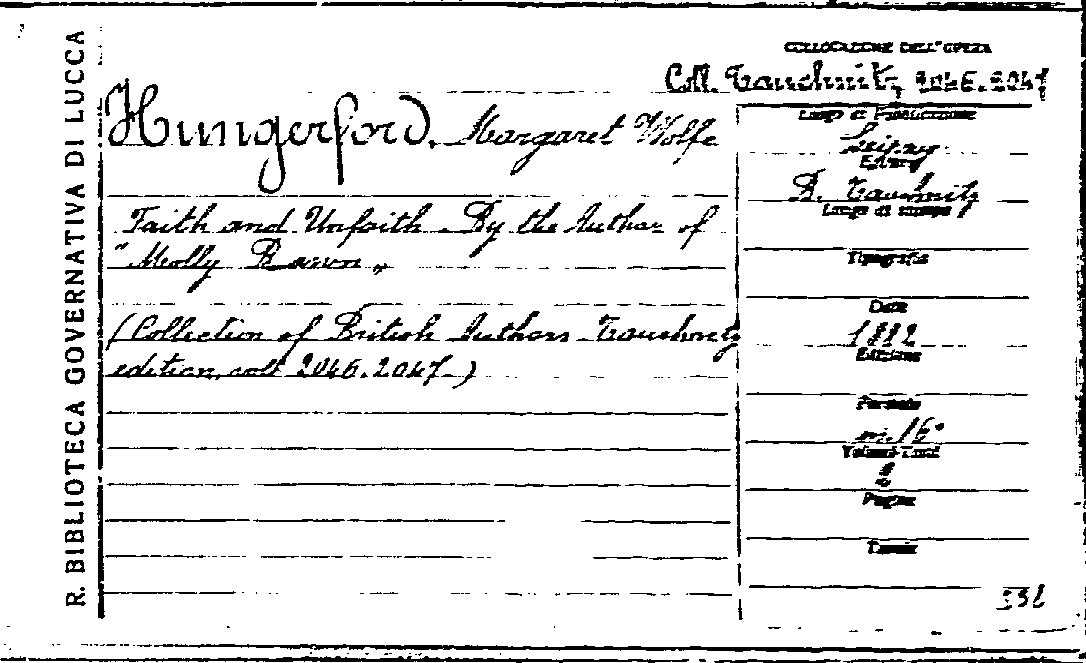 R. BIBLIOTECA GOVERNATIVA DI LUCCA
COLLOCAZIONE DELL'OPERA
Coll. Tauchnitz, 2046.2047
Hungerford, Margaret Wolfe
Faith and Unfaith. By the Author of
"Molly Bawn"
(Collection of British Authors Tauchnitz
edition, voll 2046.2047.)
Luogo di Pubblicazione
Leipzig
Editore
B. Tauchnitz
Luogo di stampa
Tipografia
Data
1882
Edizione
Formato
in 16°
Volumi
Pagine
Tavole